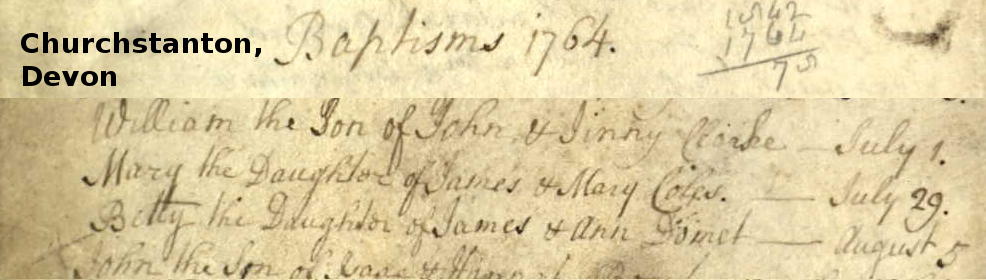 Churchstanton,
Devon
Baptisms 1764.
1842
1764
78
William the Son of John & Jinny Clarke — July 1.
Mary the Daughter of James & Mary Coles. — July 29.
Betty the Daughter of James & Ann Domet — August 5
John the Son of Isaac &